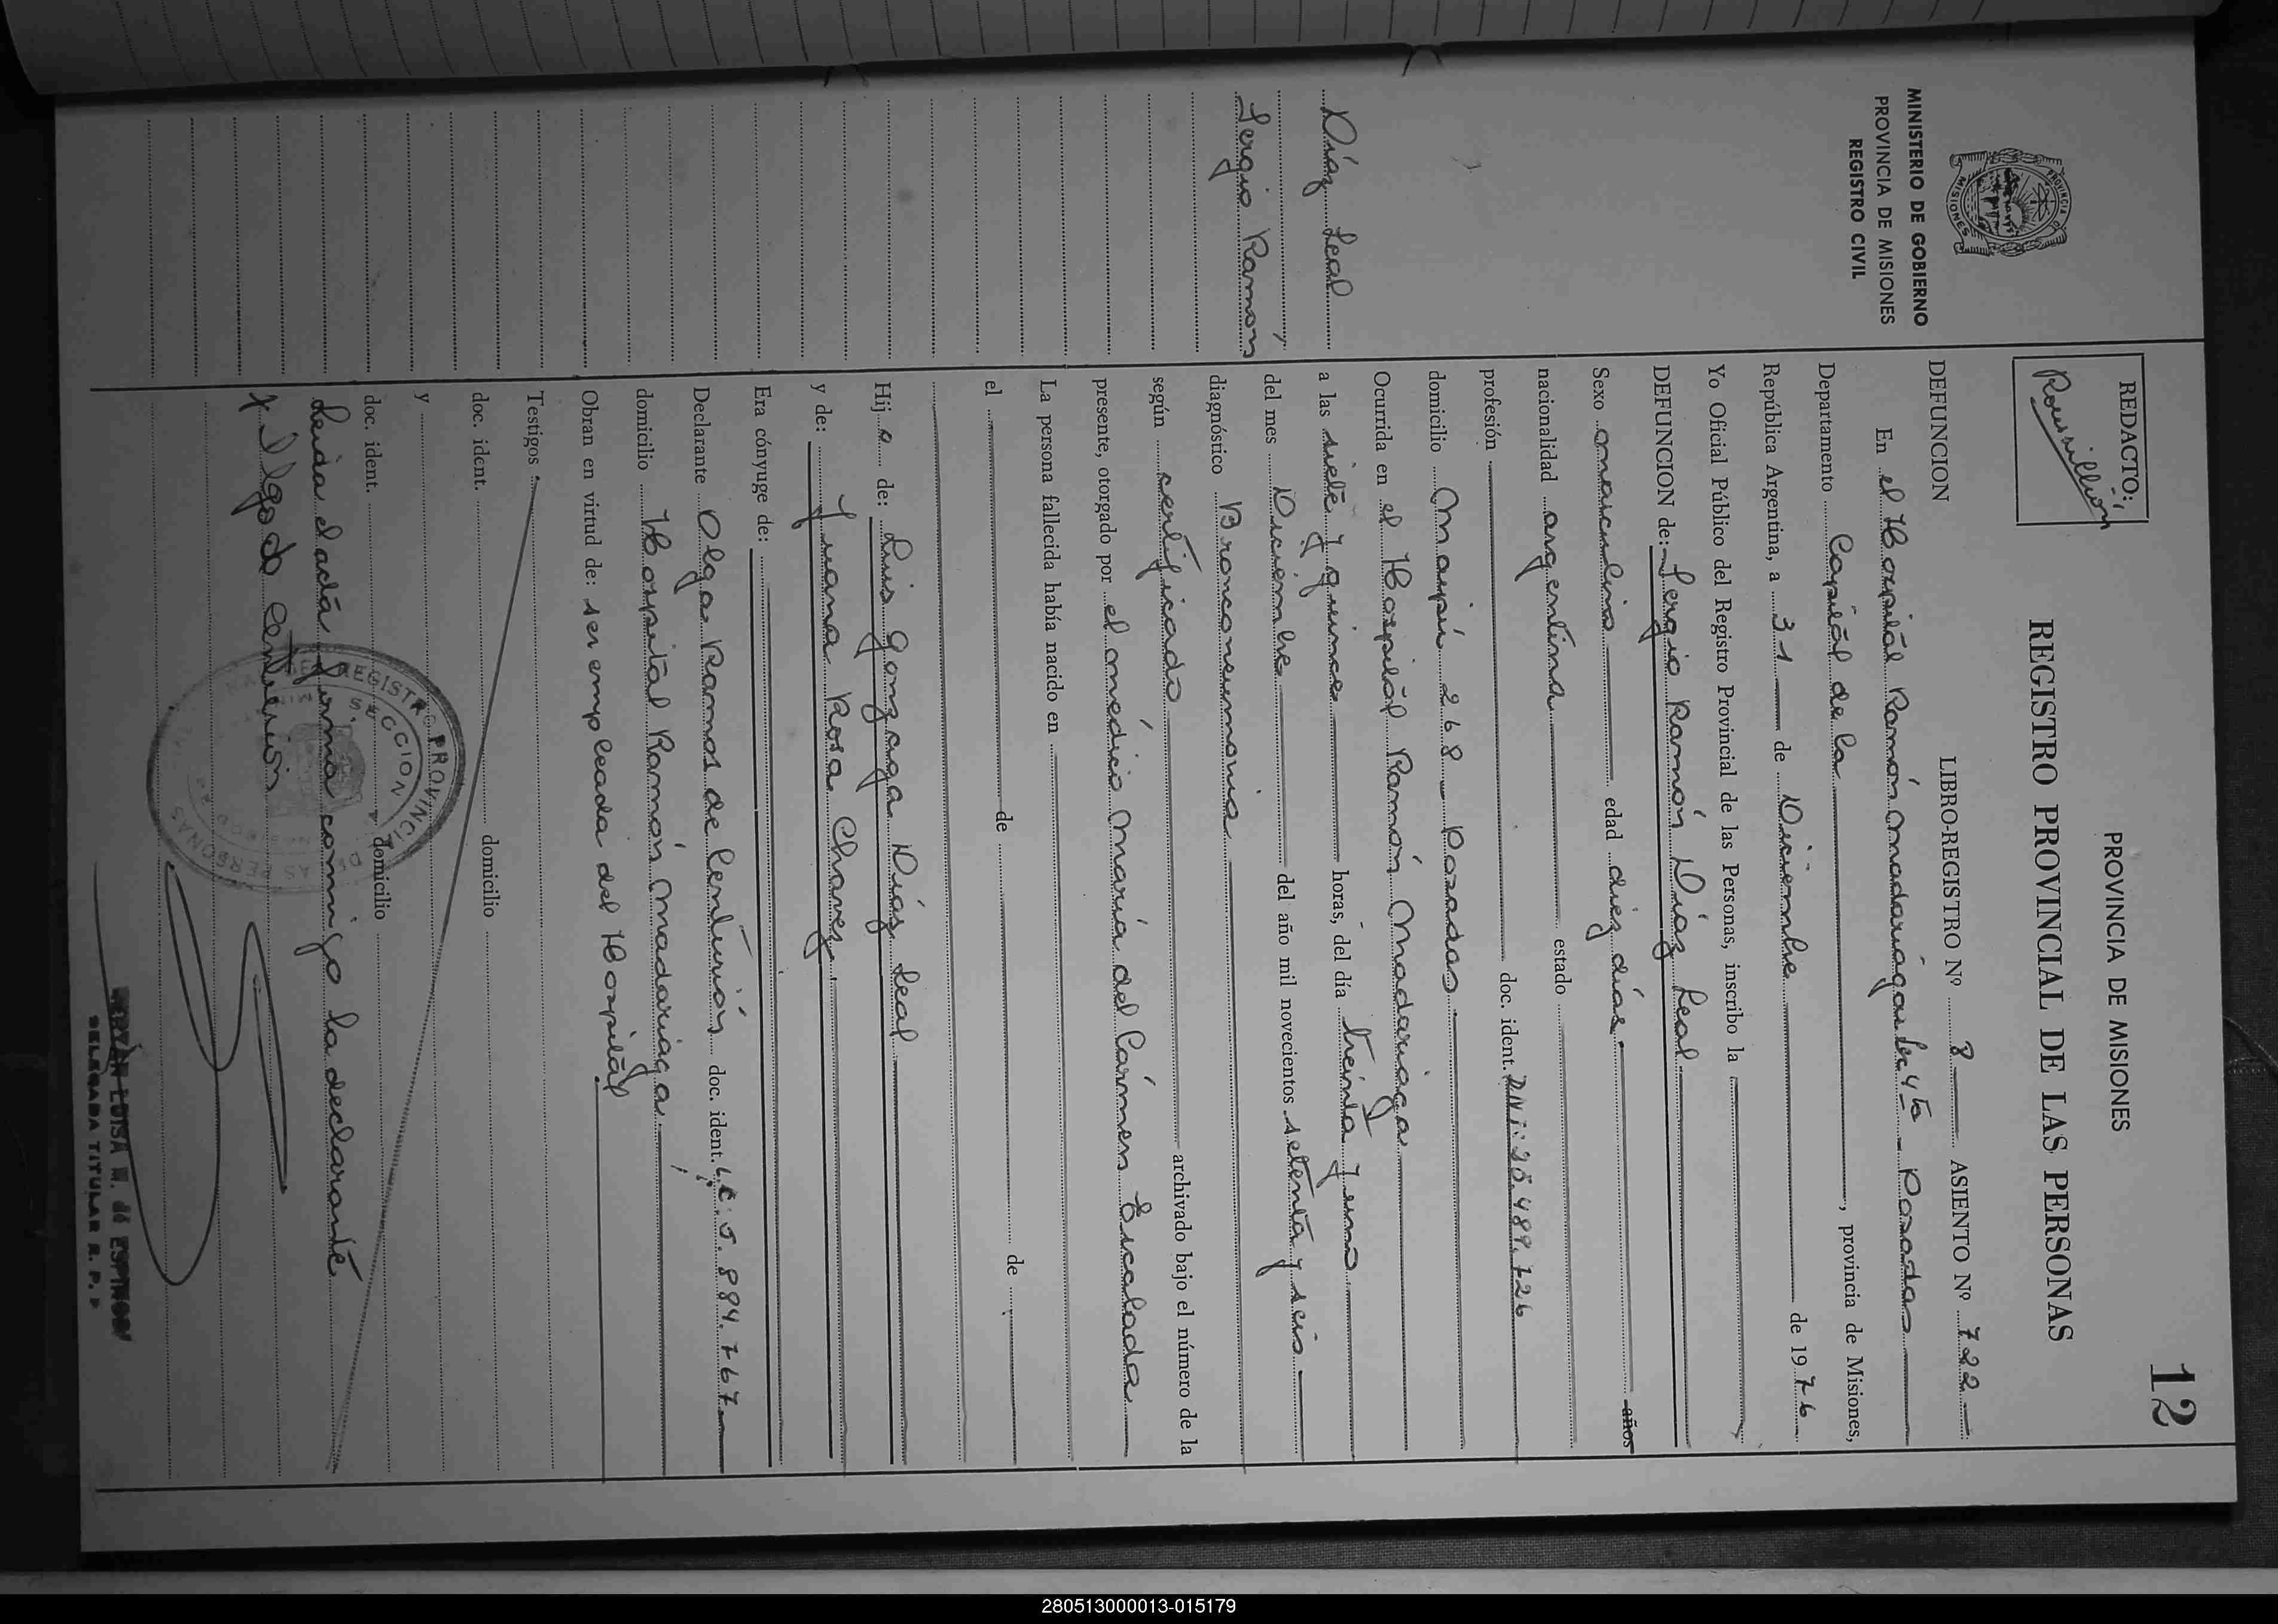 12
PROVINCIA DE MISIONES
REGISTRO PROVINCIAL DE LAS PERSONAS
REDACTO:
Roussillión
MINISTERIO DE GOBIERNO
PROVINCIA DE MISIONES
REGISTRO CIVIL
Díaz Leal
Sergio Ramón
DEFUNCION LIBRO-REGISTRO Nº 8 ASIENTO Nº 722
En el Hospital Ramón Madariaga Sec 4ta - Posadas
Departamento Capital de la, provincia de Misiones,
República Argentina, a 31 de Diciembre de 1976
Yo Oficial Público del Registro Provincial de las Personas, inscribo la
DEFUNCION de: Sergio Ramón Díaz Leal
Sexo masculino edad diez días. años
nacionalidad argentina estado
profesión doc. ident. D.N.I: 25.489.726
domicilio Maipú 268 - Posadas.
Ocurrida en el Hospital Ramón Madariaga
a las siete y quince horas, del día treinta y uno
del mes Diciembre del año mil novecientos setenta y seis
diagnóstico Bronconeumonia
según certificado archivado bajo el número de la
presente, otorgado por el médico María del Cármen Escalada
La persona fallecida había nacido en
el de de
Hijo de: Luis Gonzaga Díaz Leal
y de: Juana Rosa Chavez.
Era cónyuge de:
Declarante Olga Ramos de Centurión doc. ident. L.C: 5.884.767
domicilio Hospital Ramón Madariaga.
Obran en virtud de: ser empleada del Hospital
Testigos
doc. ident. domicilio
y
doc. ident. domicilio
Leida el acta firma comigo la declarante
REGISTRO PROVINCIAL DE LAS PERSONAS
SECCION
LUISA M. de ESPINOSA
DELEGADA TITULAR R. P. P
280513000013-015179